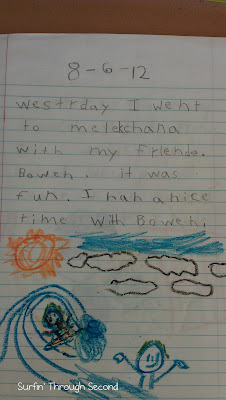 8-6-12
westrday I went
to melekchana
with my friende.
Bowen. it was
fun. I hah a nice
time with Bowen.
Surfin' Through Second